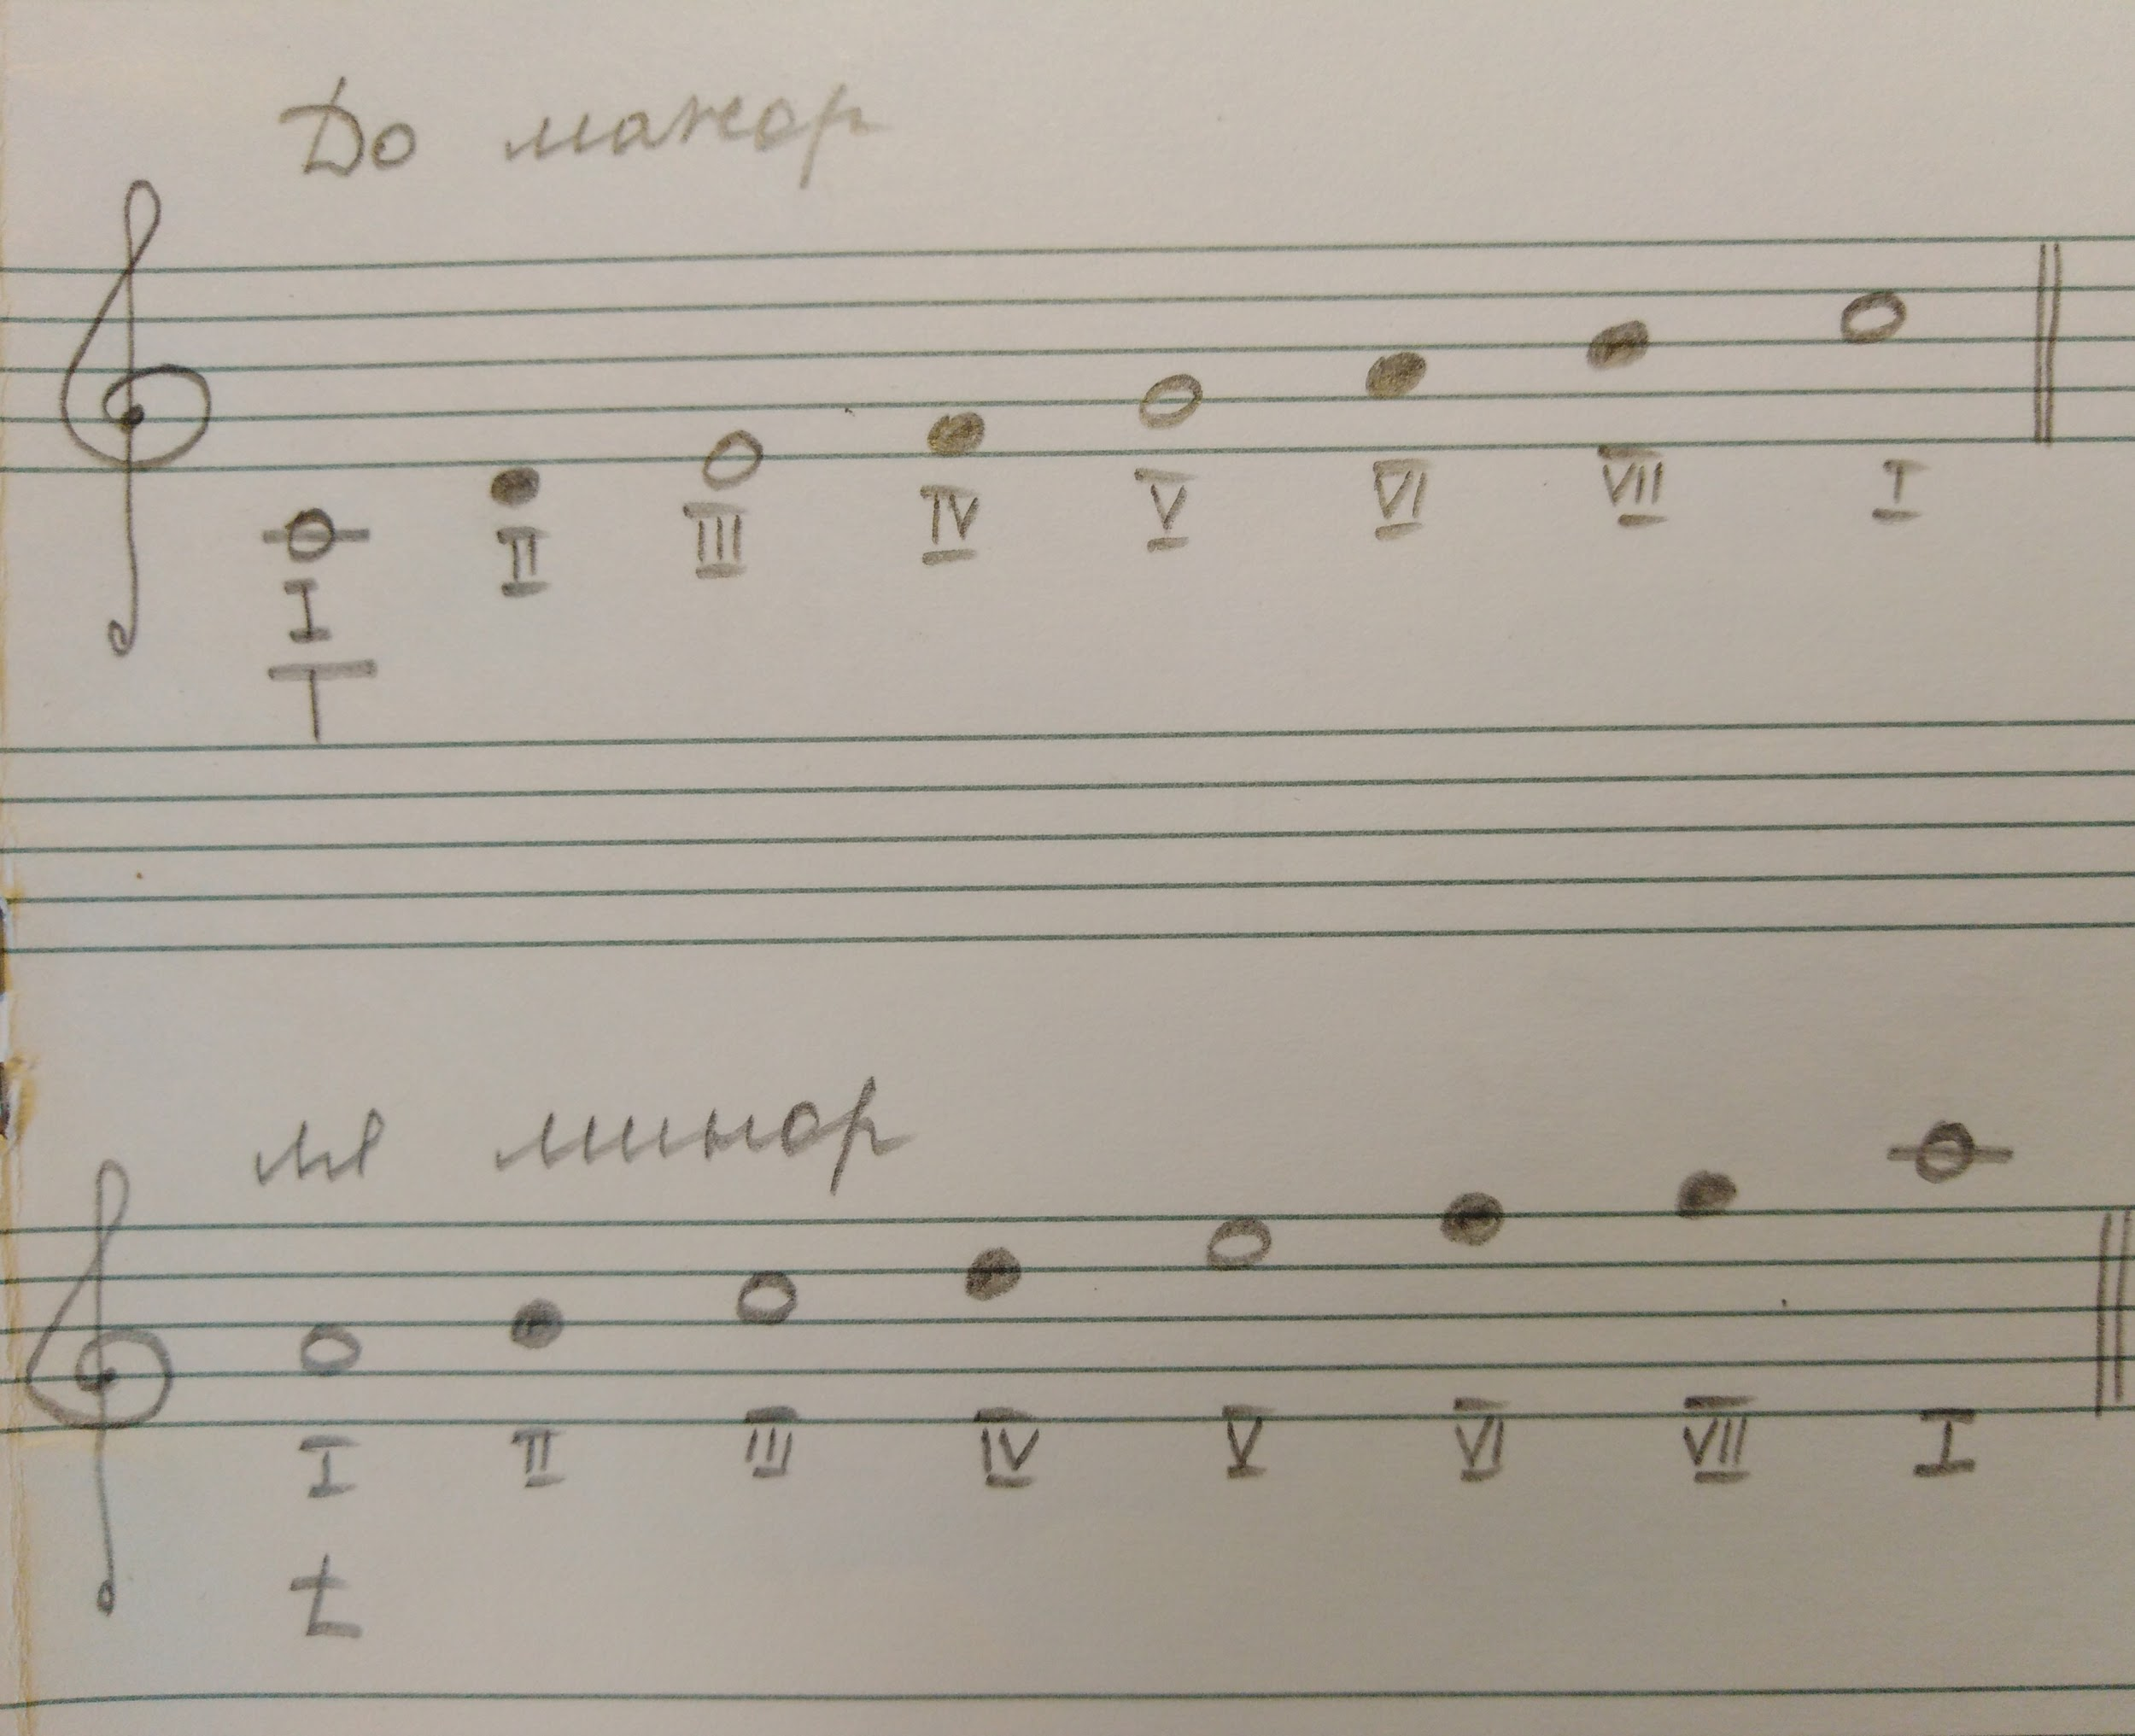 До мажор
I II III IV V VI VII I
T
ля минор
I II III IV V VI VII I
t